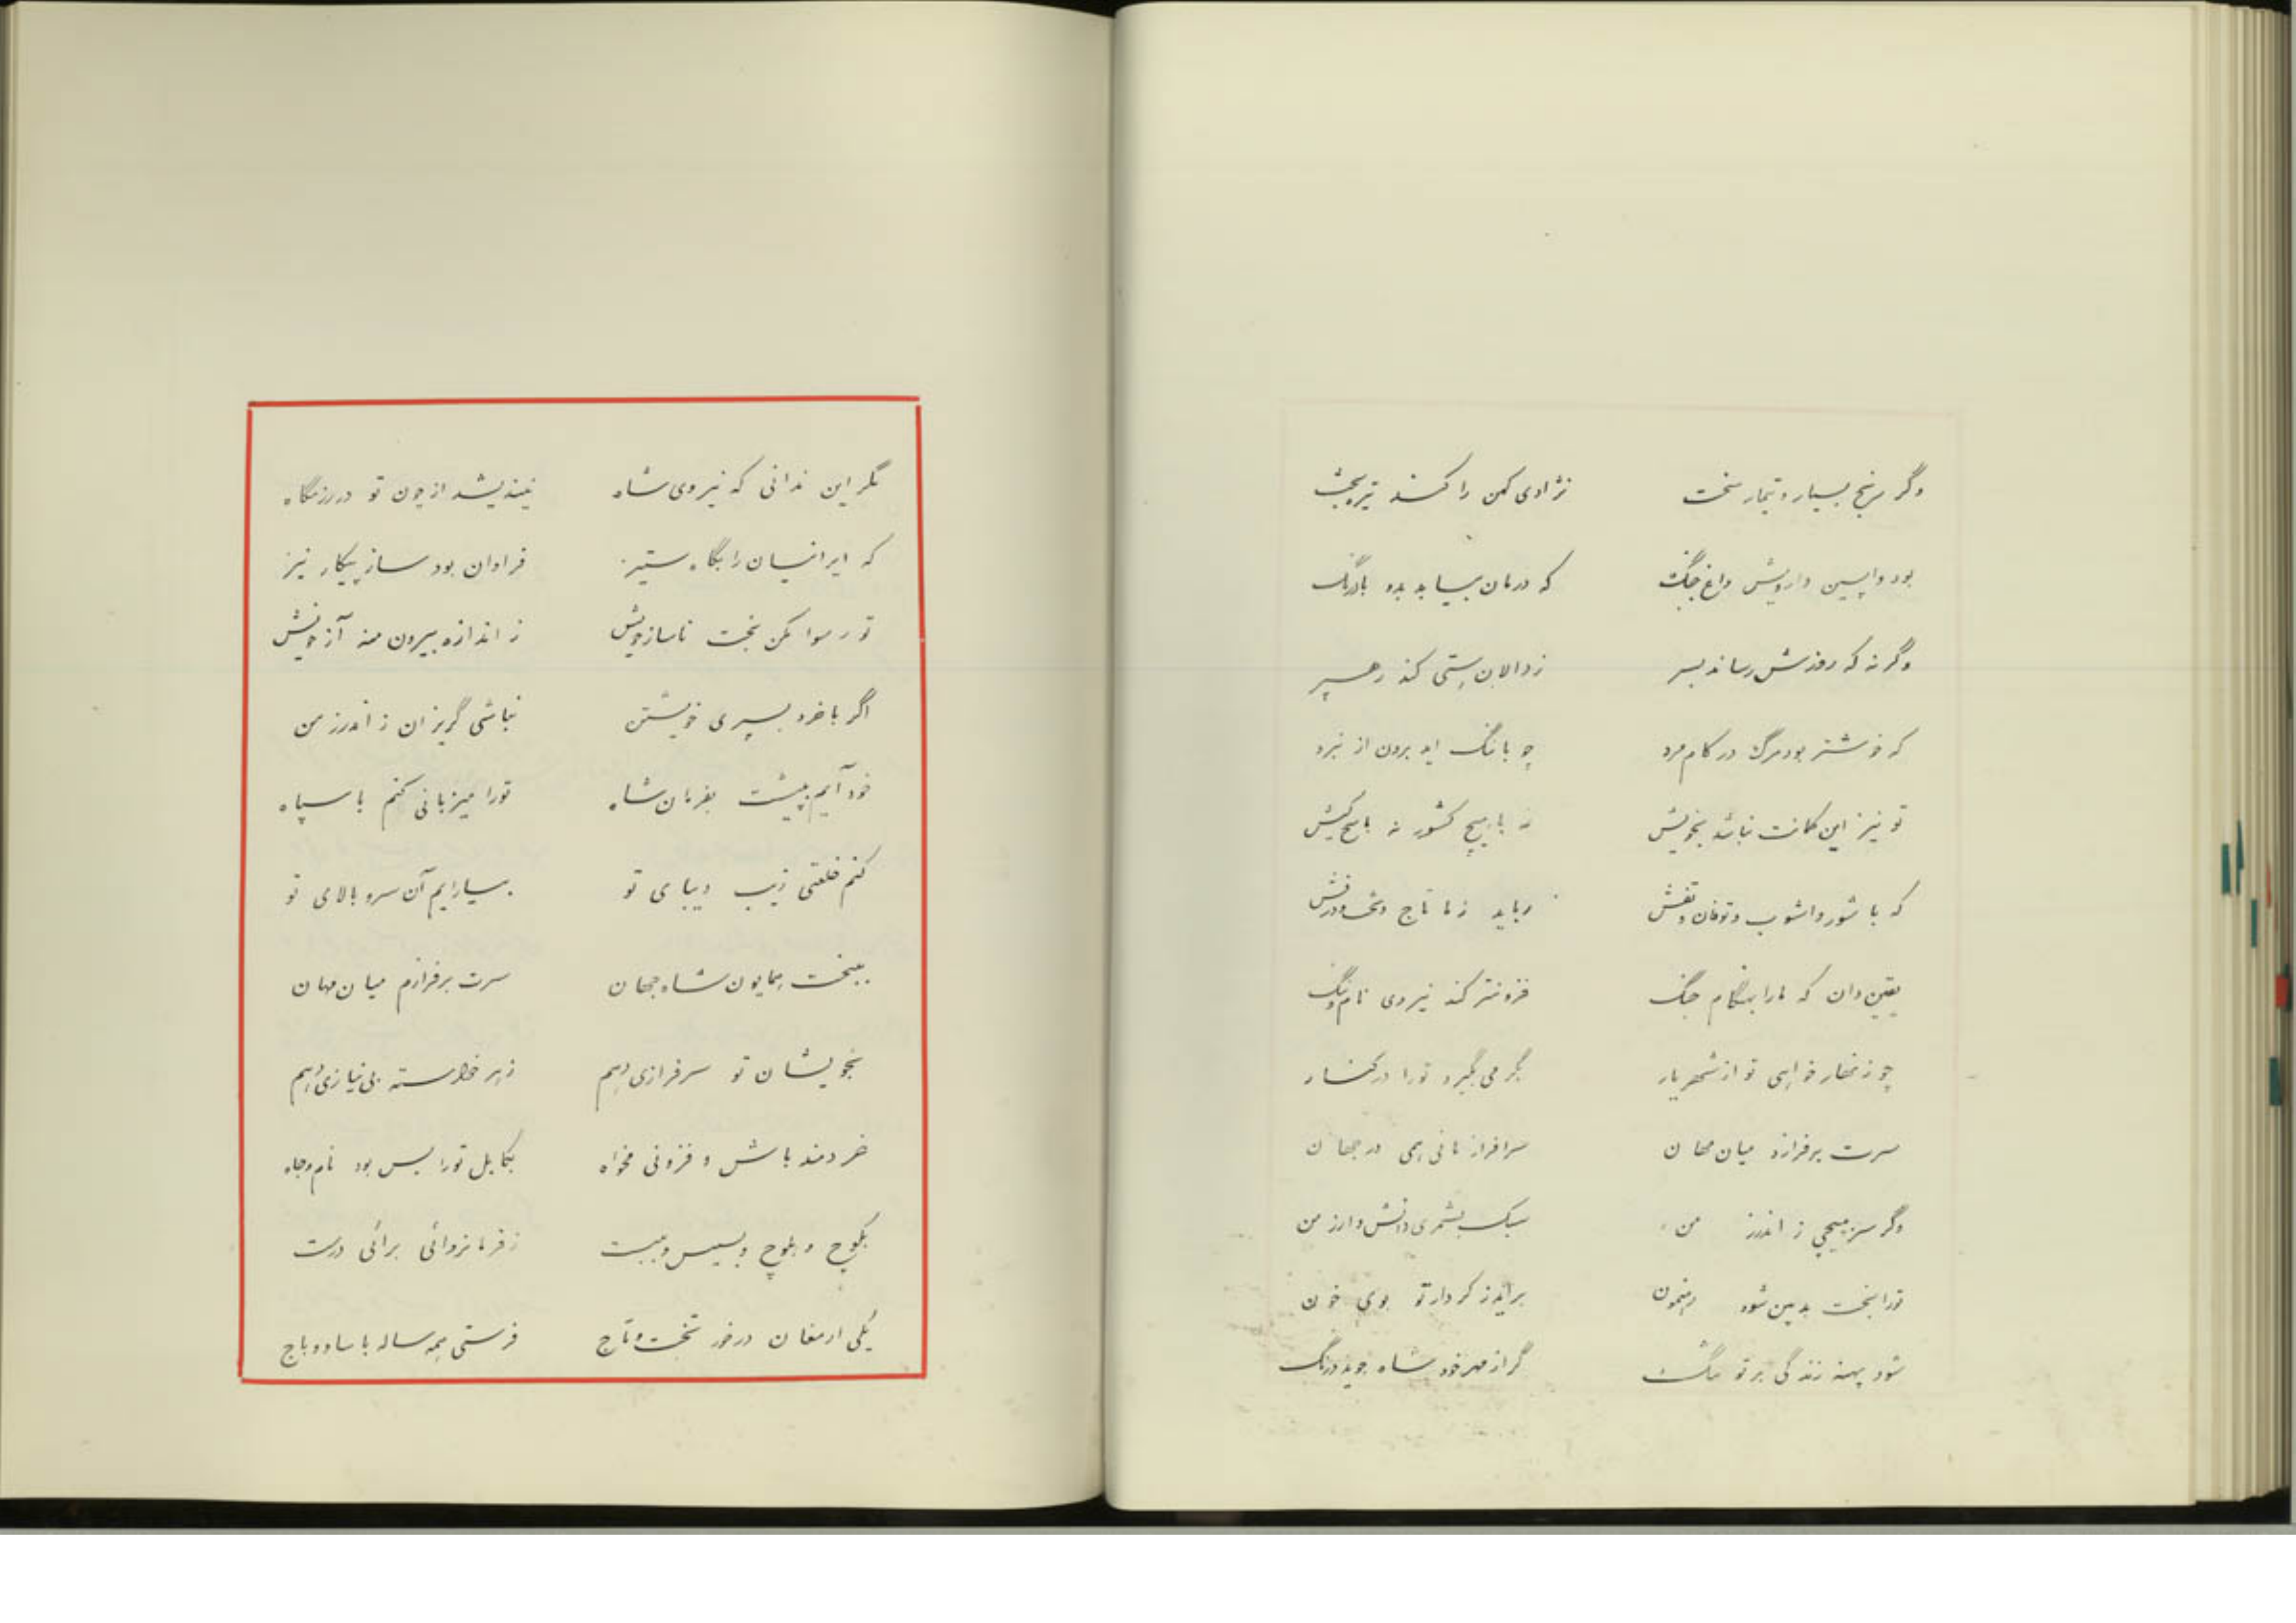 وگر رنج بسیار و تیمار سخت نژادی کهن را کند تیره بخت
بود واپسین داروش داغ جنگ که درمان بیابد بدو بادرنگ
وگرنه که روزش رساند بسر ز والابن پستی کند رهسپر
که خوشتر بود مرگ در کام مرد چو بانگ اید برون از نبرد
تو نیز این گمانت نباشد بخویش نه با هیچ کشور نه با هیچ کیش
که با شور و اشوب و توفان و تفش رباید ز ما تاج و تخت و درفش
یقین دان که مارا بهنگام جنگ فزونتر کند نیروی نام و ننگ
چو زنهار خواهی تو از شهریار بگرمی بگیرد تورا در کنار
سرت برفرازد میان مهان سرافراز مانی همی در جهان
وگر سر بپیچی ز اندرز من سبک بشمری دانش و ارز من
تورا بخت بد بین شود رهنمون براید ز کردار تو بوی خون
شود پهنه زندگی بر تو تنگ گر از مهر خود شاه جوید درنگ
نگر این ندانی که نیروی شاه نیندیشد از چون تو در رزمگاه
که ایرانیان را بگاه ستیز فراوان بود ساز پیکار نیز
تو رسوا مکن بخت ناساز خویش ز اندازه بیرون منه آز خویش
اگر با خرد بسپری خویشتن نباشی گریزان ز اندرز من
خود آیم بپیشت بفرمان شاه تورا میزبانی کنم با سپاه
کنم خلعتی زیب دیبای تو بیارایم آن سرو بالای تو
ببخت همایون شاه جهان سرت برفرازم میان مهان
بخویشان تو سرفرازی دهم ز هر خواسته بی نیازی دهم
خردمند باش و فزونی مخواه بکابل تورا بس بود نام و جاه
بکوچ و بلوچ و بسیس و ببست ز فرمانروائی برائی درست
یکی ارمغان درخور تخت و تاج فرستی همه ساله با ساو و باج